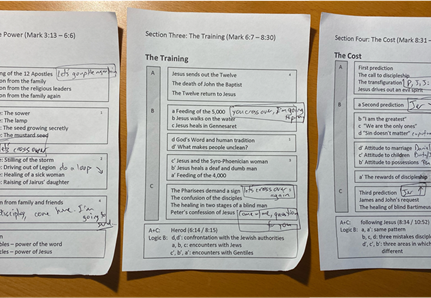 e Power (Mark 3:13 – 6:6)
ng of the 12 Apostles
on from the family
on from the religious leaders
on from the family again
e: The sower
e: The lamp
e: The seed growing secretly
e: The mustard seed
let's cross over
e: Stilling of the storm
e: Driving out of Legion
e: Healing of a sick woman
e: Raising of Jairus' daughter
n from family and friends
bles – power of the word
bles – power of Jesus
Section Three: The Training (Mark 6:7 – 8:30)
The Training
A
Jesus sends out the Twelve
The death of John the Baptist
The Twelve return to Jesus
B
a Feeding of the 5,000
you cross over, I'm going
b Jesus walks on the water
c Jesus heals in Gennesaret
d God's Word and human tradition
d' What makes people unclean?
c' Jesus and the Syro-Phoenician woman
b' Jesus heals a deaf and dumb man
a' Feeding of the 4,000
C
The Pharisees demand a sign
let's cross over
again
The confusion of the disciples
The healing in two stages of a blind man
Peter's confession of Jesus
A+C: Herod (6:14 / 8:15)
Logic B: d,d': confrontation with the Jewish authorities
a, b, c: encounters with Jews
c', b', a': encounters with Gentiles
Section Four: The Cost (Mark 8:31 –
The Cost
A
First prediction
The call to discipleship
The transfiguration
Jesus drives out an evil
B
a Second prediction
b "I am the greatest"
c "We are the only ones"
d "Sin doesn't matter"
d' Attitude to marriage
c' Attitude to children
b' Attitude to possessions
a' The rewards of discipleship
C
Third prediction
James and John's request
The healing of blind Bartimaeus
A+C: following Jesus (8:34 / 10:52)
Logic B: a, a': same pattern
b, c, d: three mistakes
d', c', b': three areas in which
different